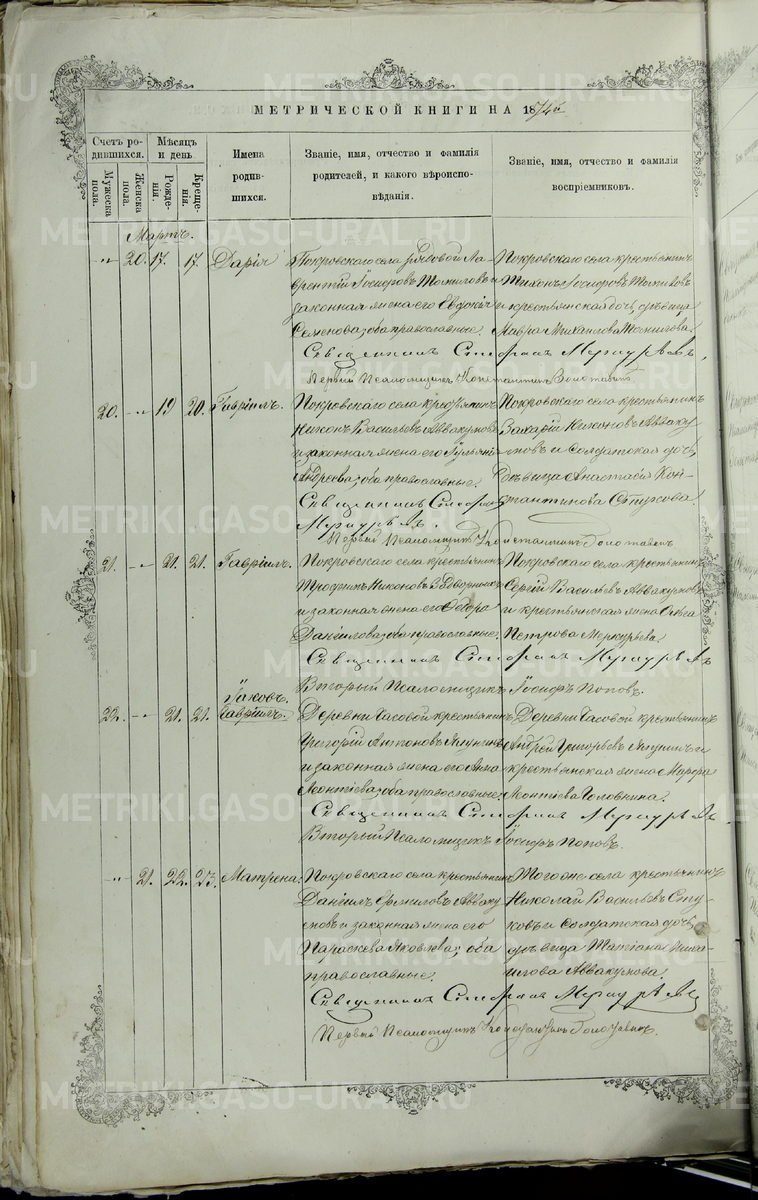 МЕТРИЧЕСКОЙ КНИГИ НА 1874й
Счетъ ро-
дившихся.
Мужеска
пола.
Женска
пола.
Мѣсяцъ
и день
Рожде-
нія.
Креще-
нія.
Имена
родив-
шихся.
Званіе, имя, отчество и фамилія
родителей, и какого вѣроиспо-
вѣданія.
Званіе, имя, отчество и фамилія
воспріемниковъ.
Мартъ.
„ 20. 17. 17. Дарія
Покровскаго села рядовой Ла-
врентій Іосифовъ Томиловъ и
законная жена его Евдокія
Семенова; оба православные.
Покровскаго села крестьянинъ
Тихонъ Іосифовъ Томиловъ
и крестьянская дочь, дѣвица
Мавра Михаилова Томилова.
Священникъ Стефанъ Меркурьевъ,
Первый Псаломщикъ Константинъ
20. „ 19 20. Гавріилъ.
Покровскаго села крестьянинъ
Никонъ Васильевъ Аввакумовъ
и законная жена его Іуліанія
Андреева; оба православные.
Покровскаго села крестьянинъ
Захарій Никоновъ Авваку-
мовъ и солдатская дочь,
дѣвица Анастасія Кон-
стантинова
Священникъ Стефанъ
Меркурьевъ.
Первый Псаломщикъ Константинъ
21. „ 21. 21. Гавріилъ.
Покровскаго села крестьянинъ
Трофимъ Никоновъ
и законная жена его Ѳеодора
Даніилова; оба православные.
Покровскаго села крестьянинъ
Сергій Васильевъ Аввакумовъ
и крестьянская жена
Петрова Меркурьева.
Священникъ Стефанъ Меркурьевъ
Вторый Псаломщикъ Іосифъ Поповъ.
Іаковъ.
22. „ 21. 21. Гавріилъ.
Деревни Часовой крестьянинъ
Григорій Антоновъ
и законная жена его Анна
Леонтіева; оба православные.
Деревни Часовой крестьянинъ
Андрей Григорьевъ и
крестьянская жена Марфа
Леонтіева Головнина.
Священникъ Стефанъ Меркурьевъ.
Вторый Псаломщикъ Іосифъ Поповъ.
„ 21. 22. 23. Матрена.
Покровскаго села крестьянинъ
Даніилъ Ермиловъ Авваку-
мовъ и законная жена его
Параскева Яковлева; оба
православные.
Того же села крестьянинъ
Николай Васильевъ Сту-
ковъ и солдатская дочь,
дѣвица Татіана Миха-
илова Аввакумова.
Священникъ Стефанъ Меркурьевъ
Первый Псаломщикъ
METRIKI.GASO-URAL.RU